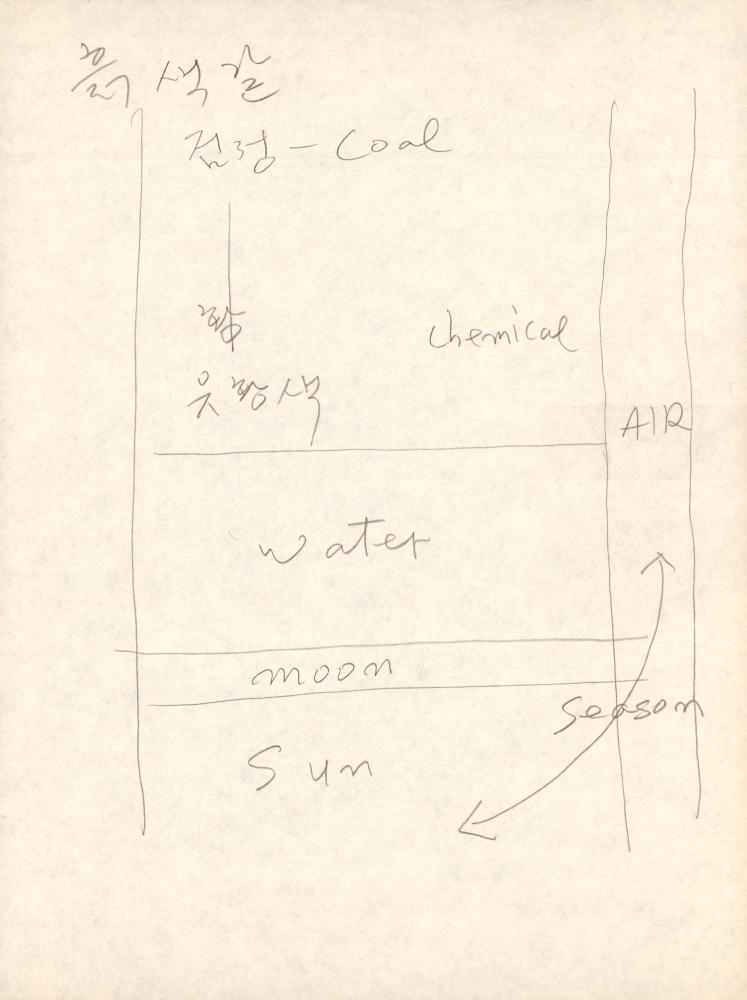 흙의 색갈
검정 - Coal
황
chemical
웃황색
AIR
water
moon
season
Sun